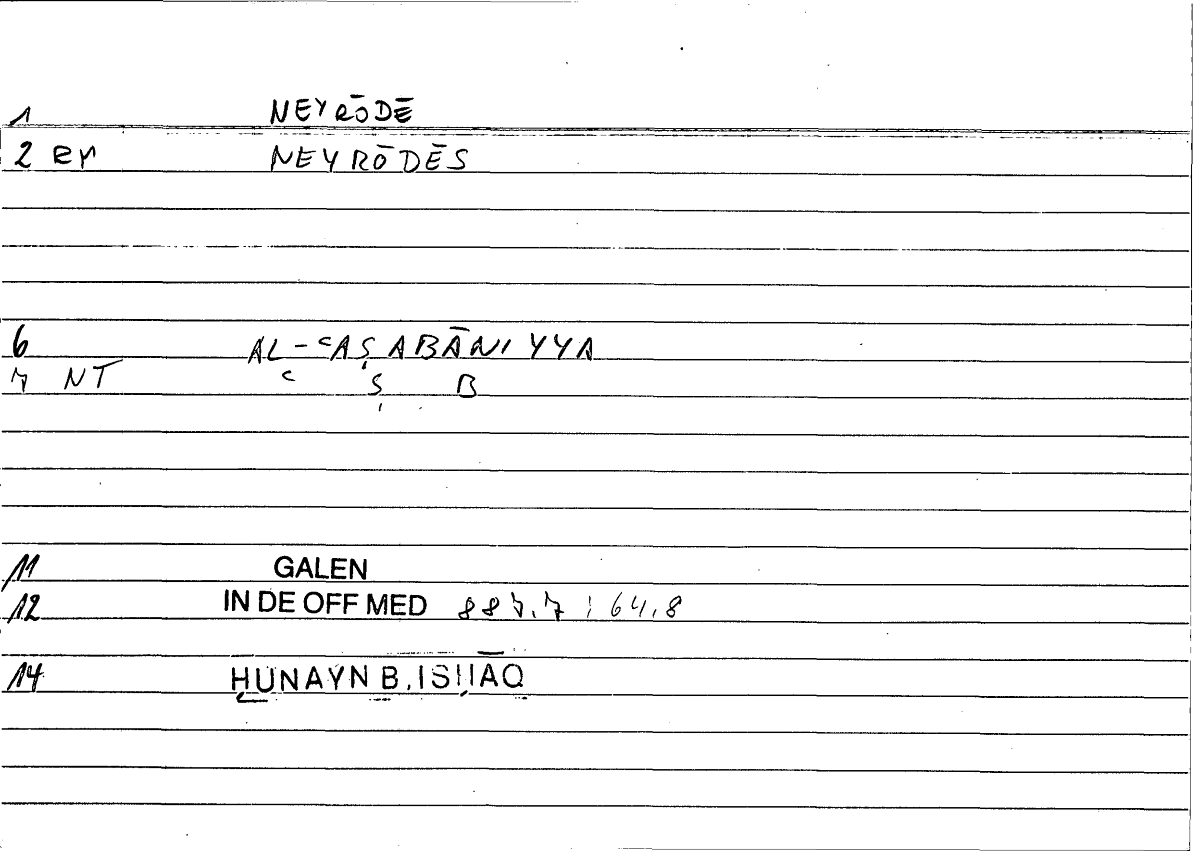 1 NEYRŌDĒ
2 er NEYRŌDĒS
6 AL-ʿAṢABĀNIYYA
7 NT ʿ Ṣ B
11 GALEN
12 IN DE OFF MED 887.7 ; 64.8
14 ḤUNAYN B. ISḤĀQ